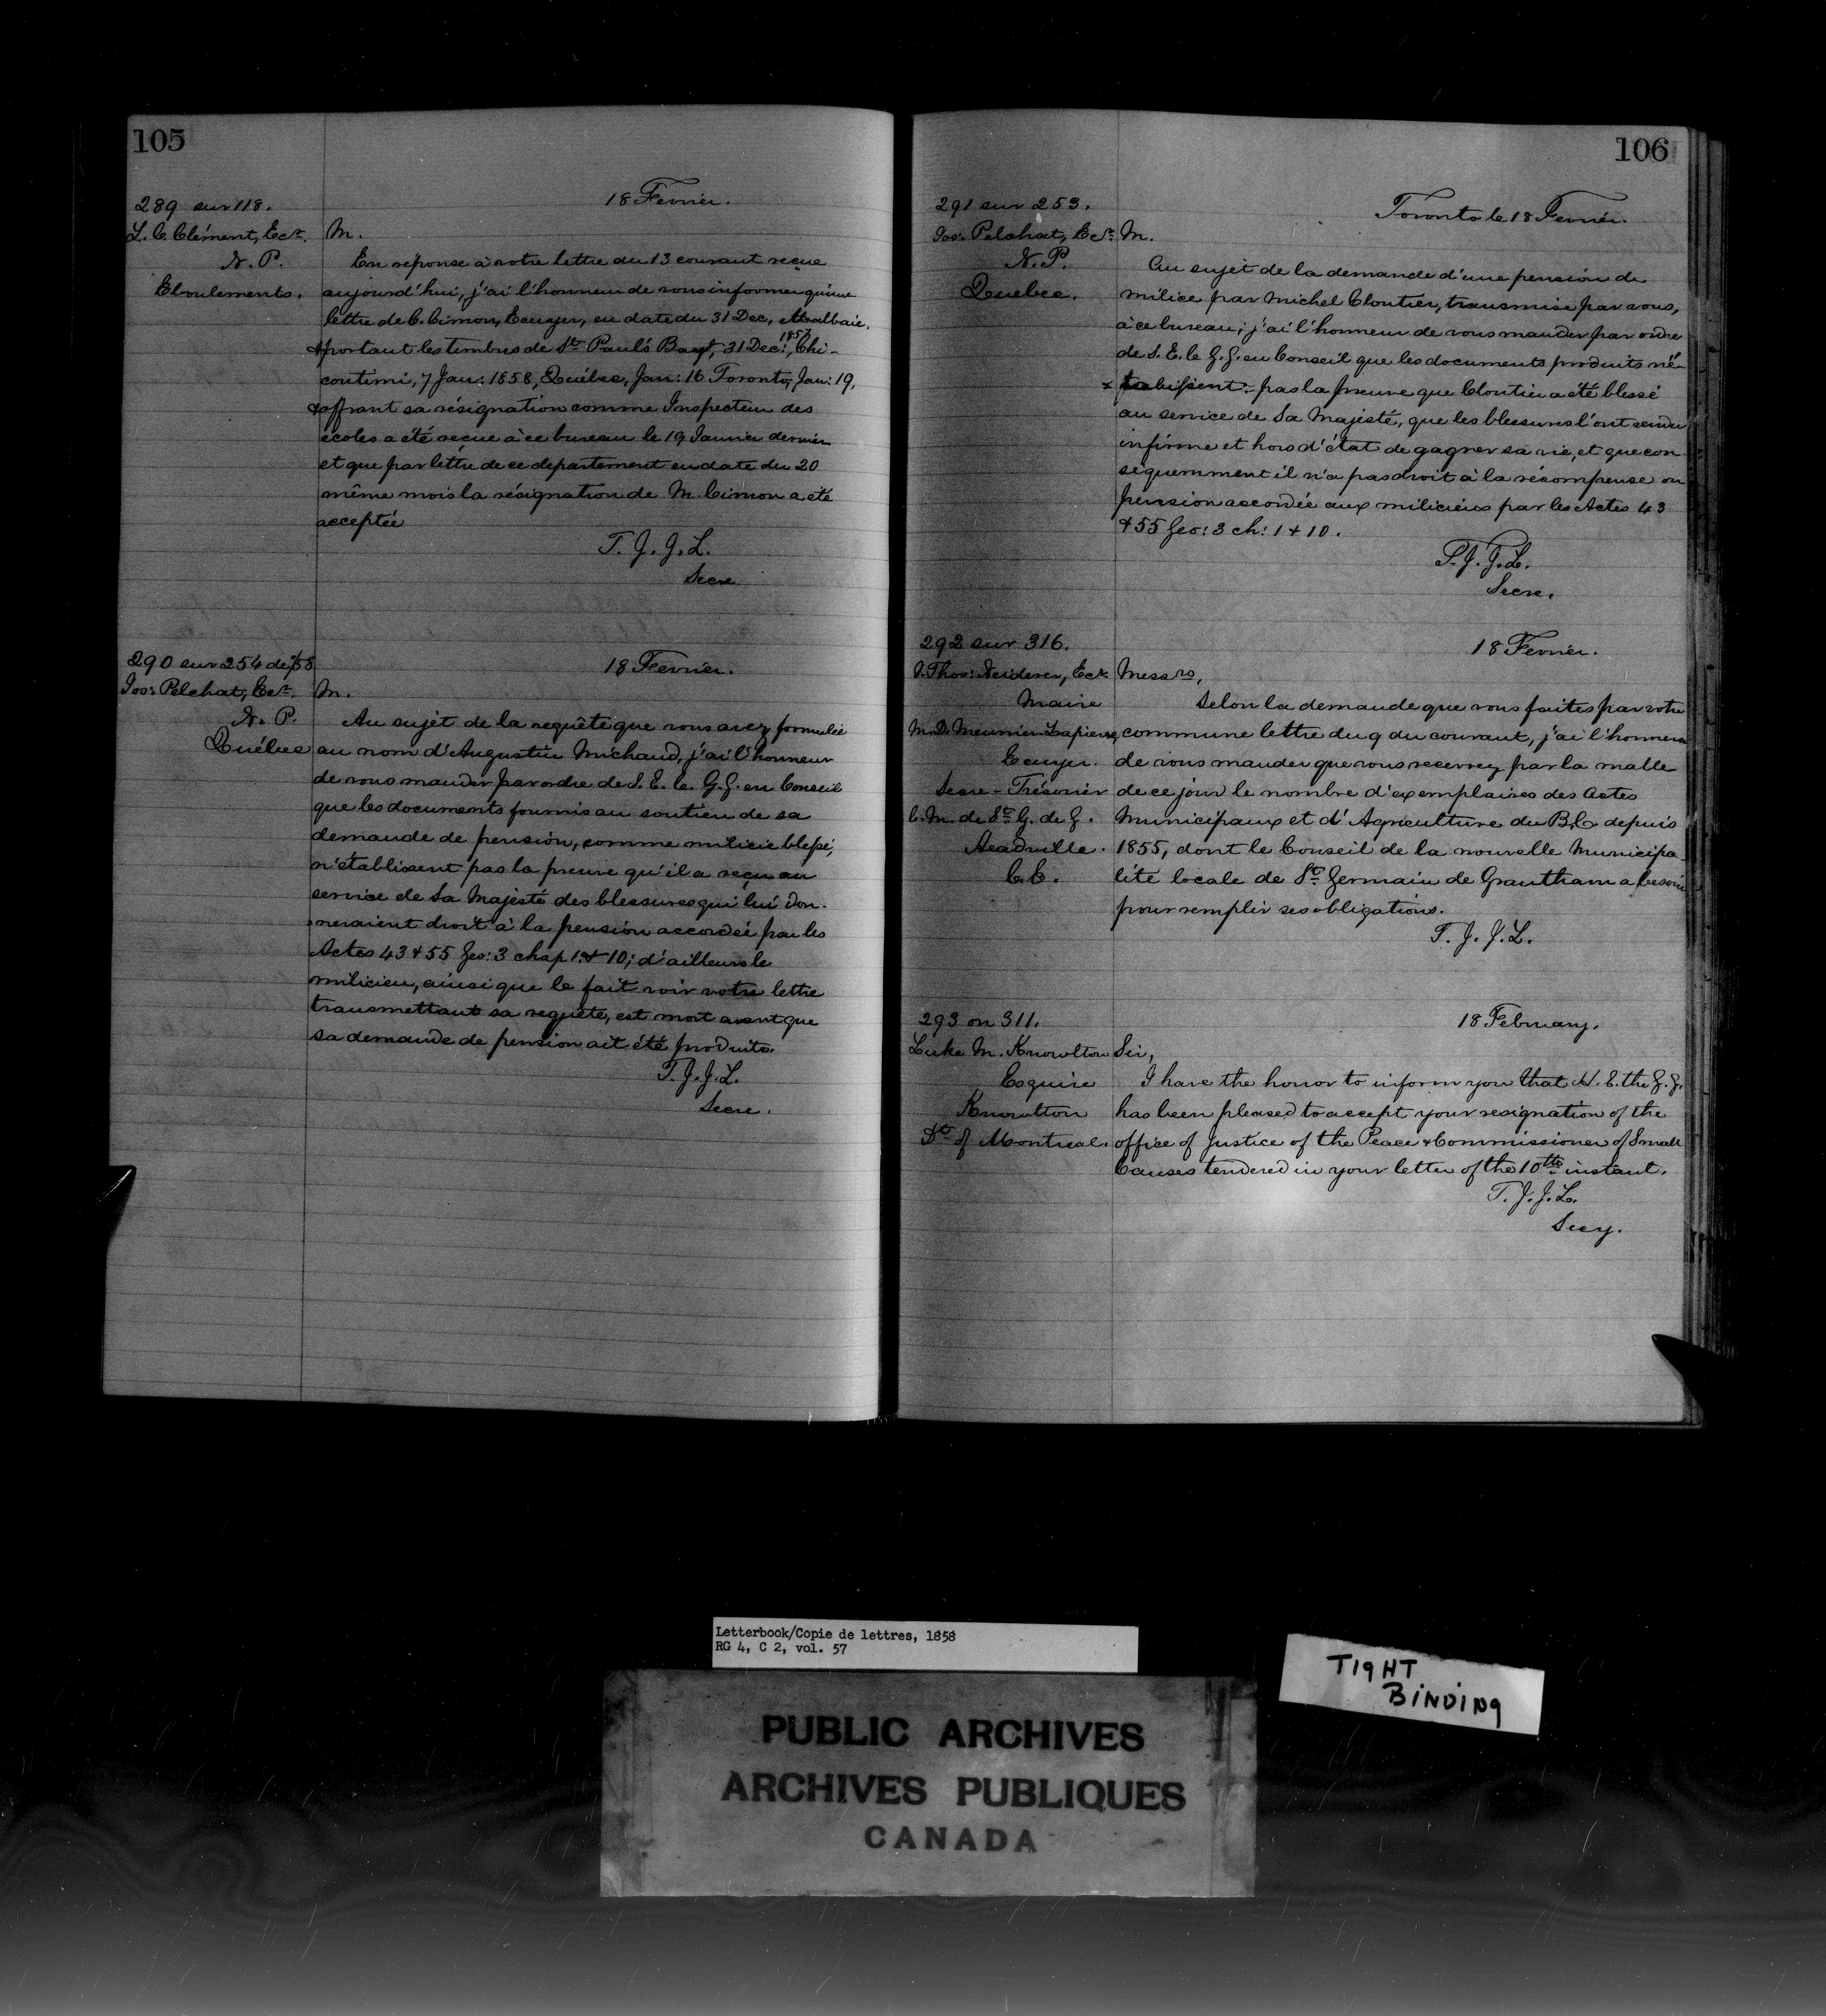 105
289 sur 118.
18 Fevrier.
L. C. Clément, Ecr.
N. P.
Eboulements.
M.
En réponse à votre lettre du 13 courant reçue
aujourd'hui, j'ai l'honneur de vous informer qu'une
lettre de C. Cimon, Ecuyer, en date du 31 Dec, Malbaie,
1857
& portant les timbres de St. Paul's Bay, 31 Dec:, Chi-
coutimi, 7 Jan: 1858, Québec, Jan: 16 Toronto, Jan: 19,
& offrant sa résignation comme Inspecteur des
écoles a été reçue à ce bureau le 19 Janvier dernier
et que par lettre de ce departement en date du 20
même mois la résignation de M. Cimon a été
acceptée
T. J. J. L.
Secre.
290 sur 254 de /58
18 Fevrier.
Jos: Pelchat, Ecr.
N. P.
Québec
M.
Au sujet de la requête que vous avez formulée
au nom d'Augustin Michaud, j'ai l'honneur
de vous mander par ordre de S. E. le G. G. en Conseil
que les documents fournis au soutien de sa
demande de pension, comme milicie blessé,
n'établissent pas la preuve qu'il a reçu au
service de Sa Majesté des blessures qui lui don-
neraient droit à la pension accordée par les
Actes 43 & 55 Geo: 3 chap 1. & 10; d'ailleurs le
milicien, ainsi que le fait voir votre lettre
transmettant sa requête, est mort avant que
sa demande de pension ait été produite.
T. J. J. L.
Secre.
106
291 sur 253.
Toronto le 18 Fevrier.
Jos: Pelchat, Ecr.
N. P.
Quebec.
M.
Au sujet de la demande d'une pension de
milice par Michel Cloutier, transmise par vous,
à ce bureau; j'ai l'honneur de vous mander par ordre
de S. E. le G. G. en Conseil que les documents produits n'é-
tablissent pas la preuve que Cloutier a été blessé
au service de Sa Majesté, que les blessures l'ont rendu
infirme et hors d'état de gagner sa vie, et que con
séquemment il n'a pas droit à la récompense ou
pension accordée aux miliciens par les Actes 43
& 55 Geo: 3 ch: 1 & 10.
T. J. J. L.
Secre.
292 sur 316.
18 Fevrier.
J. Thos: Neiderer, Ecr.
Maire
M. D. Meunier Lapierre,
Ecuyer.
Secre-Trésorier
C. M. de St. G. de G.
Headville.
C. E.
Messrs,
Selon la demande que vous faites par votre
commune lettre du 9 du courant, j'ai l'honneur
de vous mander que vous recevrez par la malle
de ce jour le nombre d'exemplaires des Actes
Municipaux et d'Agriculture du B. C. depuis
1855, dont le Conseil de la nouvelle Municipa-
lité locale de St. Germain de Grantham a besoin
pour remplir ses obligations.
T. J. J. L.
293 on 311.
18 February.
Luke M. Knowlton
Esquire
Knowlton
Dt. of Montreal.
Sir,
I have the honor to inform you that H. E. the G. G.
has been pleased to accept your resignation of the
office of Justice of the Peace & Commissioner of Small
Causes tendered in your letter of the 10th instant.
T. J. J. L.
Secy.
Letterbook/Copie de lettres, 1858
RG 4, C 2, vol. 57
TIGHT
BINDING
PUBLIC ARCHIVES
ARCHIVES PUBLIQUES
CANADA